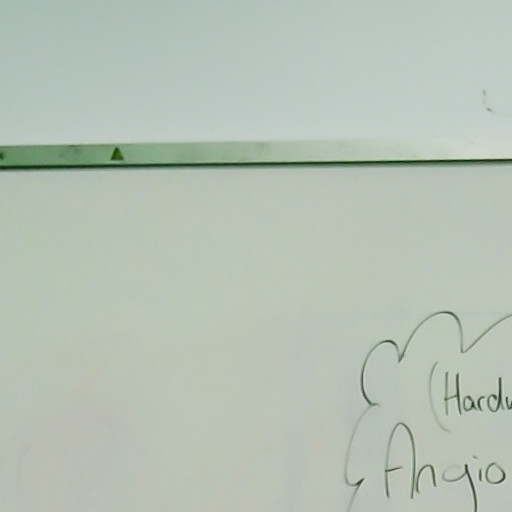 (Hardw
Angio